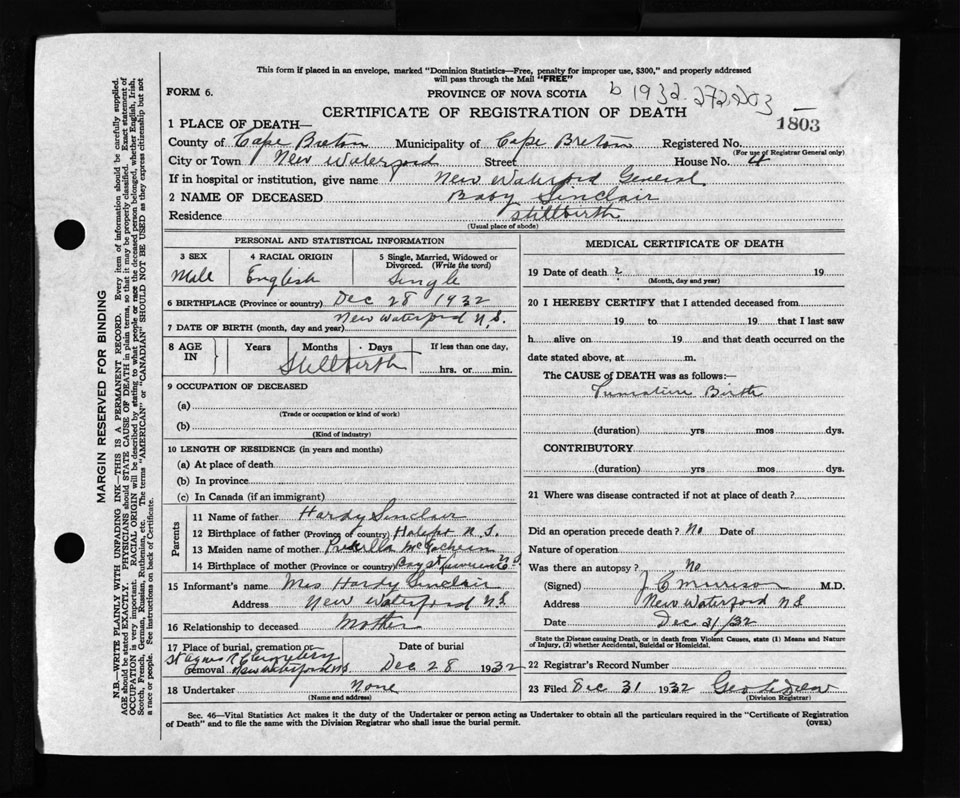 This form if placed in an envelope, marked "Dominion Statistics—Free, penalty for improper use, $300," and properly addressed
will pass through the Mail "FREE"
FORM 6.
PROVINCE OF NOVA SCOTIA
b 1932.272203
CERTIFICATE OF REGISTRATION OF DEATH
1803
1 PLACE OF DEATH—
County of Cape Breton Municipality of Cape Breton Registered No.
(For use of Registrar General only)
City or Town New Waterford Street House No. 4
If in hospital or institution, give name New Waterford General
2 NAME OF DECEASED Baby Sinclair
Residence Stillbirth
(Usual place of abode)
PERSONAL AND STATISTICAL INFORMATION
3 SEX 4 RACIAL ORIGIN 5 Single, Married, Widowed or
Divorced. (Write the word)
Male English Single
6 BIRTHPLACE (Province or country) Dec 28 1932
7 DATE OF BIRTH (month, day and year) New Waterford N.S.
8 AGE IN Years Months Days If less than one day,
Stillbirth hrs. or min.
9 OCCUPATION OF DECEASED
(a)
(Trade or occupation or kind of work)
(b)
(Kind of industry)
10 LENGTH OF RESIDENCE (in years and months)
(a) At place of death
(b) In province
(c) In Canada (if an immigrant)
Parents
11 Name of father Hardy Sinclair
12 Birthplace of father (Province of country) Halifax N.S.
13 Maiden name of mother
14 Birthplace of mother (Province or country) Bay St Lawrence N.S.
15 Informant's name Mrs Hardy Sinclair
Address New Waterford N.S
16 Relationship to deceased Mother
17 Place of burial, cremation or Date of burial
St Agnes
removal New Waterford N.S. Dec 28 1932
18 Undertaker None
(Name and address)
MEDICAL CERTIFICATE OF DEATH
19 Date of death 19
(Month, day and year)
20 I HEREBY CERTIFY that I attended deceased from
19 to 19 that I last saw
h alive on 19 and that death occurred on the
date stated above, at m.
The CAUSE of DEATH was as follows:—
Birth
(duration) yrs mos dys.
CONTRIBUTORY
(duration) yrs mos dys.
21 Where was disease contracted if not at place of death?
Did an operation precede death? No Date of
Nature of operation
Was there an autopsy? No
(Signed) J C Morrison M.D.
Address New Waterford N.S
Date Dec 31/32
State the Disease causing Death, or in death from Violent Causes, state (1) Means and Nature
of Injury, (2) whether Accidental, Suicidal or Homicidal.
22 Registrar's Record Number
23 Filed Dec 31 1932 Geo
(Division Registrar)
Sec. 46—Vital Statistics Act makes it the duty of the Undertaker or person acting as Undertaker to obtain all the particulars required in the "Certificate of Registration
of Death" and to file the same with the Division Registrar who shall issue the burial permit. (OVER)
MARGIN RESERVED FOR BINDING
N.B.—WRITE PLAINLY WITH UNFADING INK—THIS IS A PERMANENT RECORD. Every item of information should be carefully supplied.
AGE should be stated EXACTLY. PHYSICIANS should STATE CAUSE OF DEATH in plain terms, so that it may be properly classified. Exact statement of
OCCUPATION is very important. RACIAL ORIGIN will be described by stating to what people or race the deceased person belonged, whether English, Irish,
Scotch, French, German, Russian, Ruthenian, etc. The terms "AMERICAN" or "CANADIAN" SHOULD NOT BE USED as they express citizenship but not
a race or people. See instructions on back of Certificate.